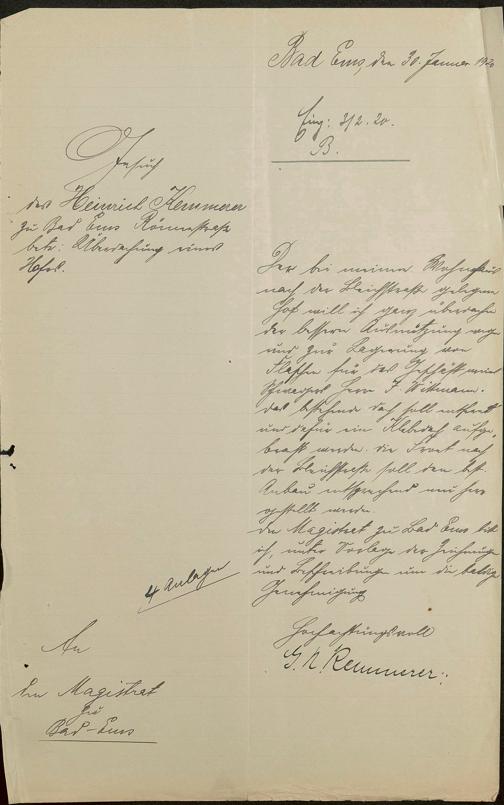 Bad Ems, den 30. Januar 1920
Eing: 3/2.20.
B.
Gesuch
des Heinrich Kemmerer
zu Bad Ems Römerstraße
betr: Überdachung eines
Hofes.
Der bei meinem Wohnhaus
nach der Bleichstraße gelegene
Hof will ich ganz überdachen
der bessern Ausnützung wegen
und zur Lagerung von
Flaschen für das Geschäft meines
Schwagers Herr J. Wittmann.
Das bestehende Dach soll entfernt
und dafür ein Klebdach aufge-
bracht werden. Die Front nach
der Bleichstraße soll dem best.
Anbau entsprechend neu her-
gestellt werden.
Den Magistrat zu Bad Ems bitte
ich, unter Vorlage der Zeichnungen
und Beschreibungen um die baldige
Genehmigung
4 Anlagen
Hochachtungsvoll
Kemmerer
An
den Magistrat
zu
Bad-Ems